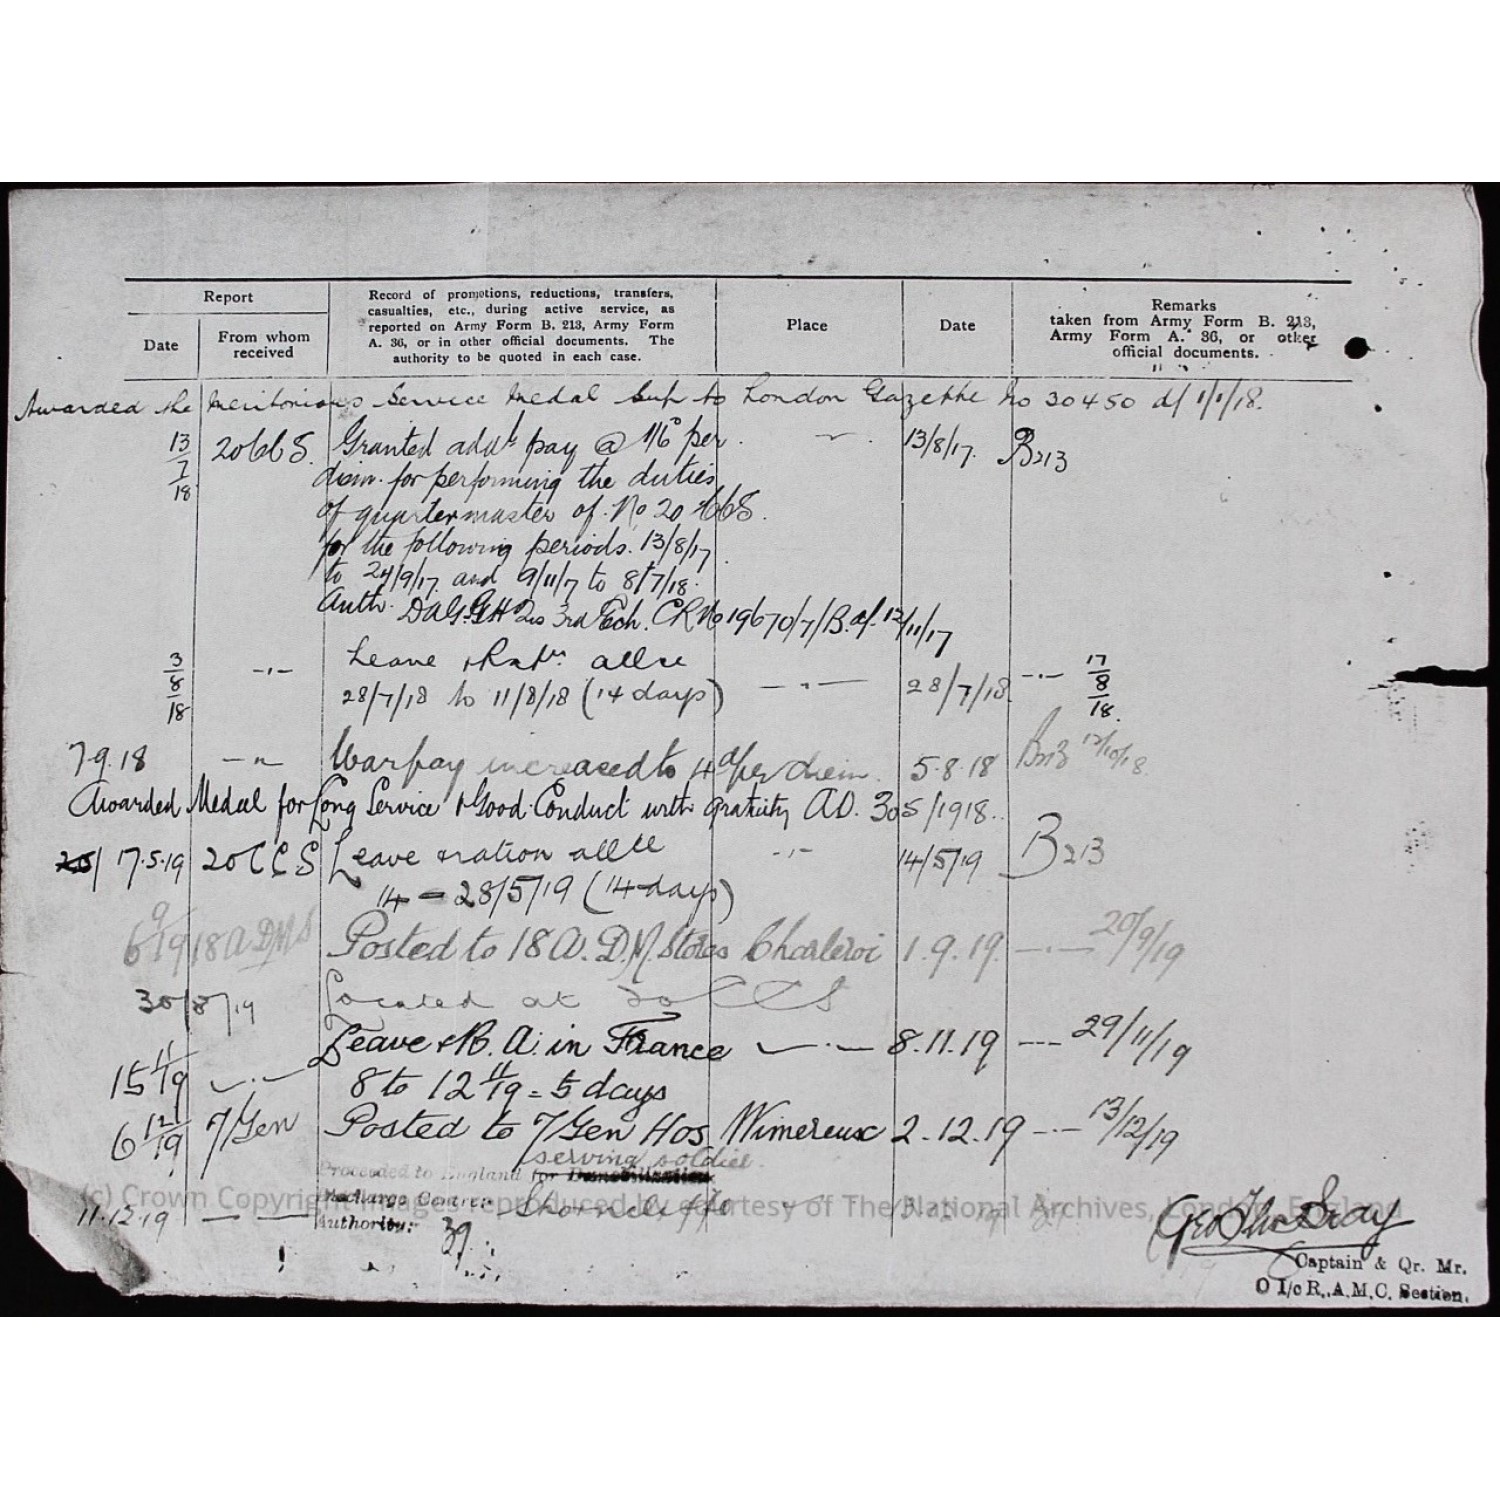 Report
Record of promotions, reductions, transfers,
casualties, etc., during active service, as
reported on Army Form B. 213, Army Form
A. 36, or in other official documents. The
authority to be quoted in each case.
Place
Date
Remarks
taken from Army Form B. 213,
Army Form A. 36, or other
official documents.
Date
From whom
received
Awarded the Meritorious Service Medal Sup to London Gazette No 30450 d/ 1/1/18.
13/7/18 20CCS. Granted addl pay @ 1/6 per 13/8/17. B213
diem for performing the duties
of quartermaster of No 20 CCS.
for the following periods. 13/8/17
to 24/9/17 and 9/11/7 to 8/7/18.
Auth. DAG. GHQrs 3rd Ech. CR No 19670/7/B. d/. 12/11/17
3/8/18 -"- Leave & Ratn allce
28/7/18 to 11/8/18 (14 days) -"- 28/7/18 -"- 17/8/18.
7.9.18 -"- War pay increased to 4d per diem. 5.8.18 B213 12/10/18.
Awarded Medal for Long Service & Good Conduct with gratuity AO. 305/1918.
17.5.19 20CCS Leave & ration allce -"- 14/5/19 B213
14 - 28/5/19 (14 days)
6/9/19 18 A.D.M.S Posted to 18 A. D. M. Stores Charleroi 1.9.19. -"- 20/9/19
30/8/19 Located at 20 CCS
Leave & R. A. in France -"- 8.11.19 -"- 29/11/19
15/11/19 -"- 8 to 12 11/19 = 5 days
6 12/19 7/Gen Posted to 7/Gen Hos Wimereux 2.12.19 -"- 13/12/19
serving soldier.
Proceeded to England for Demobilization
11.12.19 - - Discharge Centre Shorncliffe
Authority: 39
(c) Crown Copyright Images reproduced by courtesy of The National Archives, London, England
Captain & Qr. Mr.
O I/c R.A.M.C. Section.